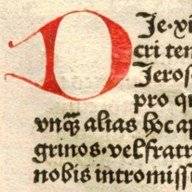 DIe·xi
cri ter
Jeros
pro qu
vnqꝫ alias hoc ap
grinos·vel fratr
nobis intromiss